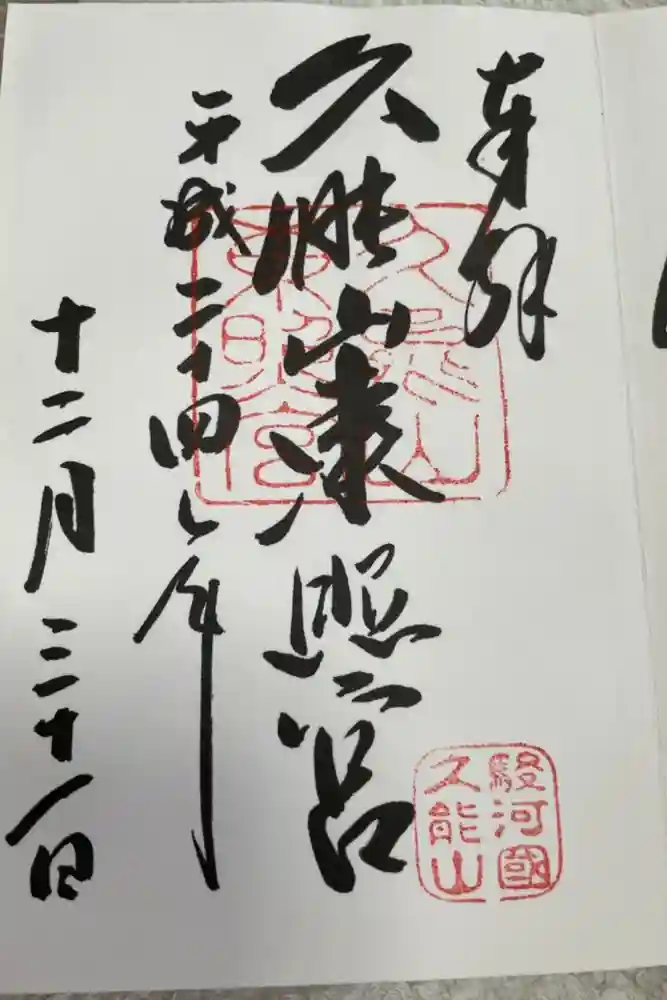 奉拝
久能山東照宮
平成二十四年
十二月三十一日
久能山
東照宮
駿河國
久能山